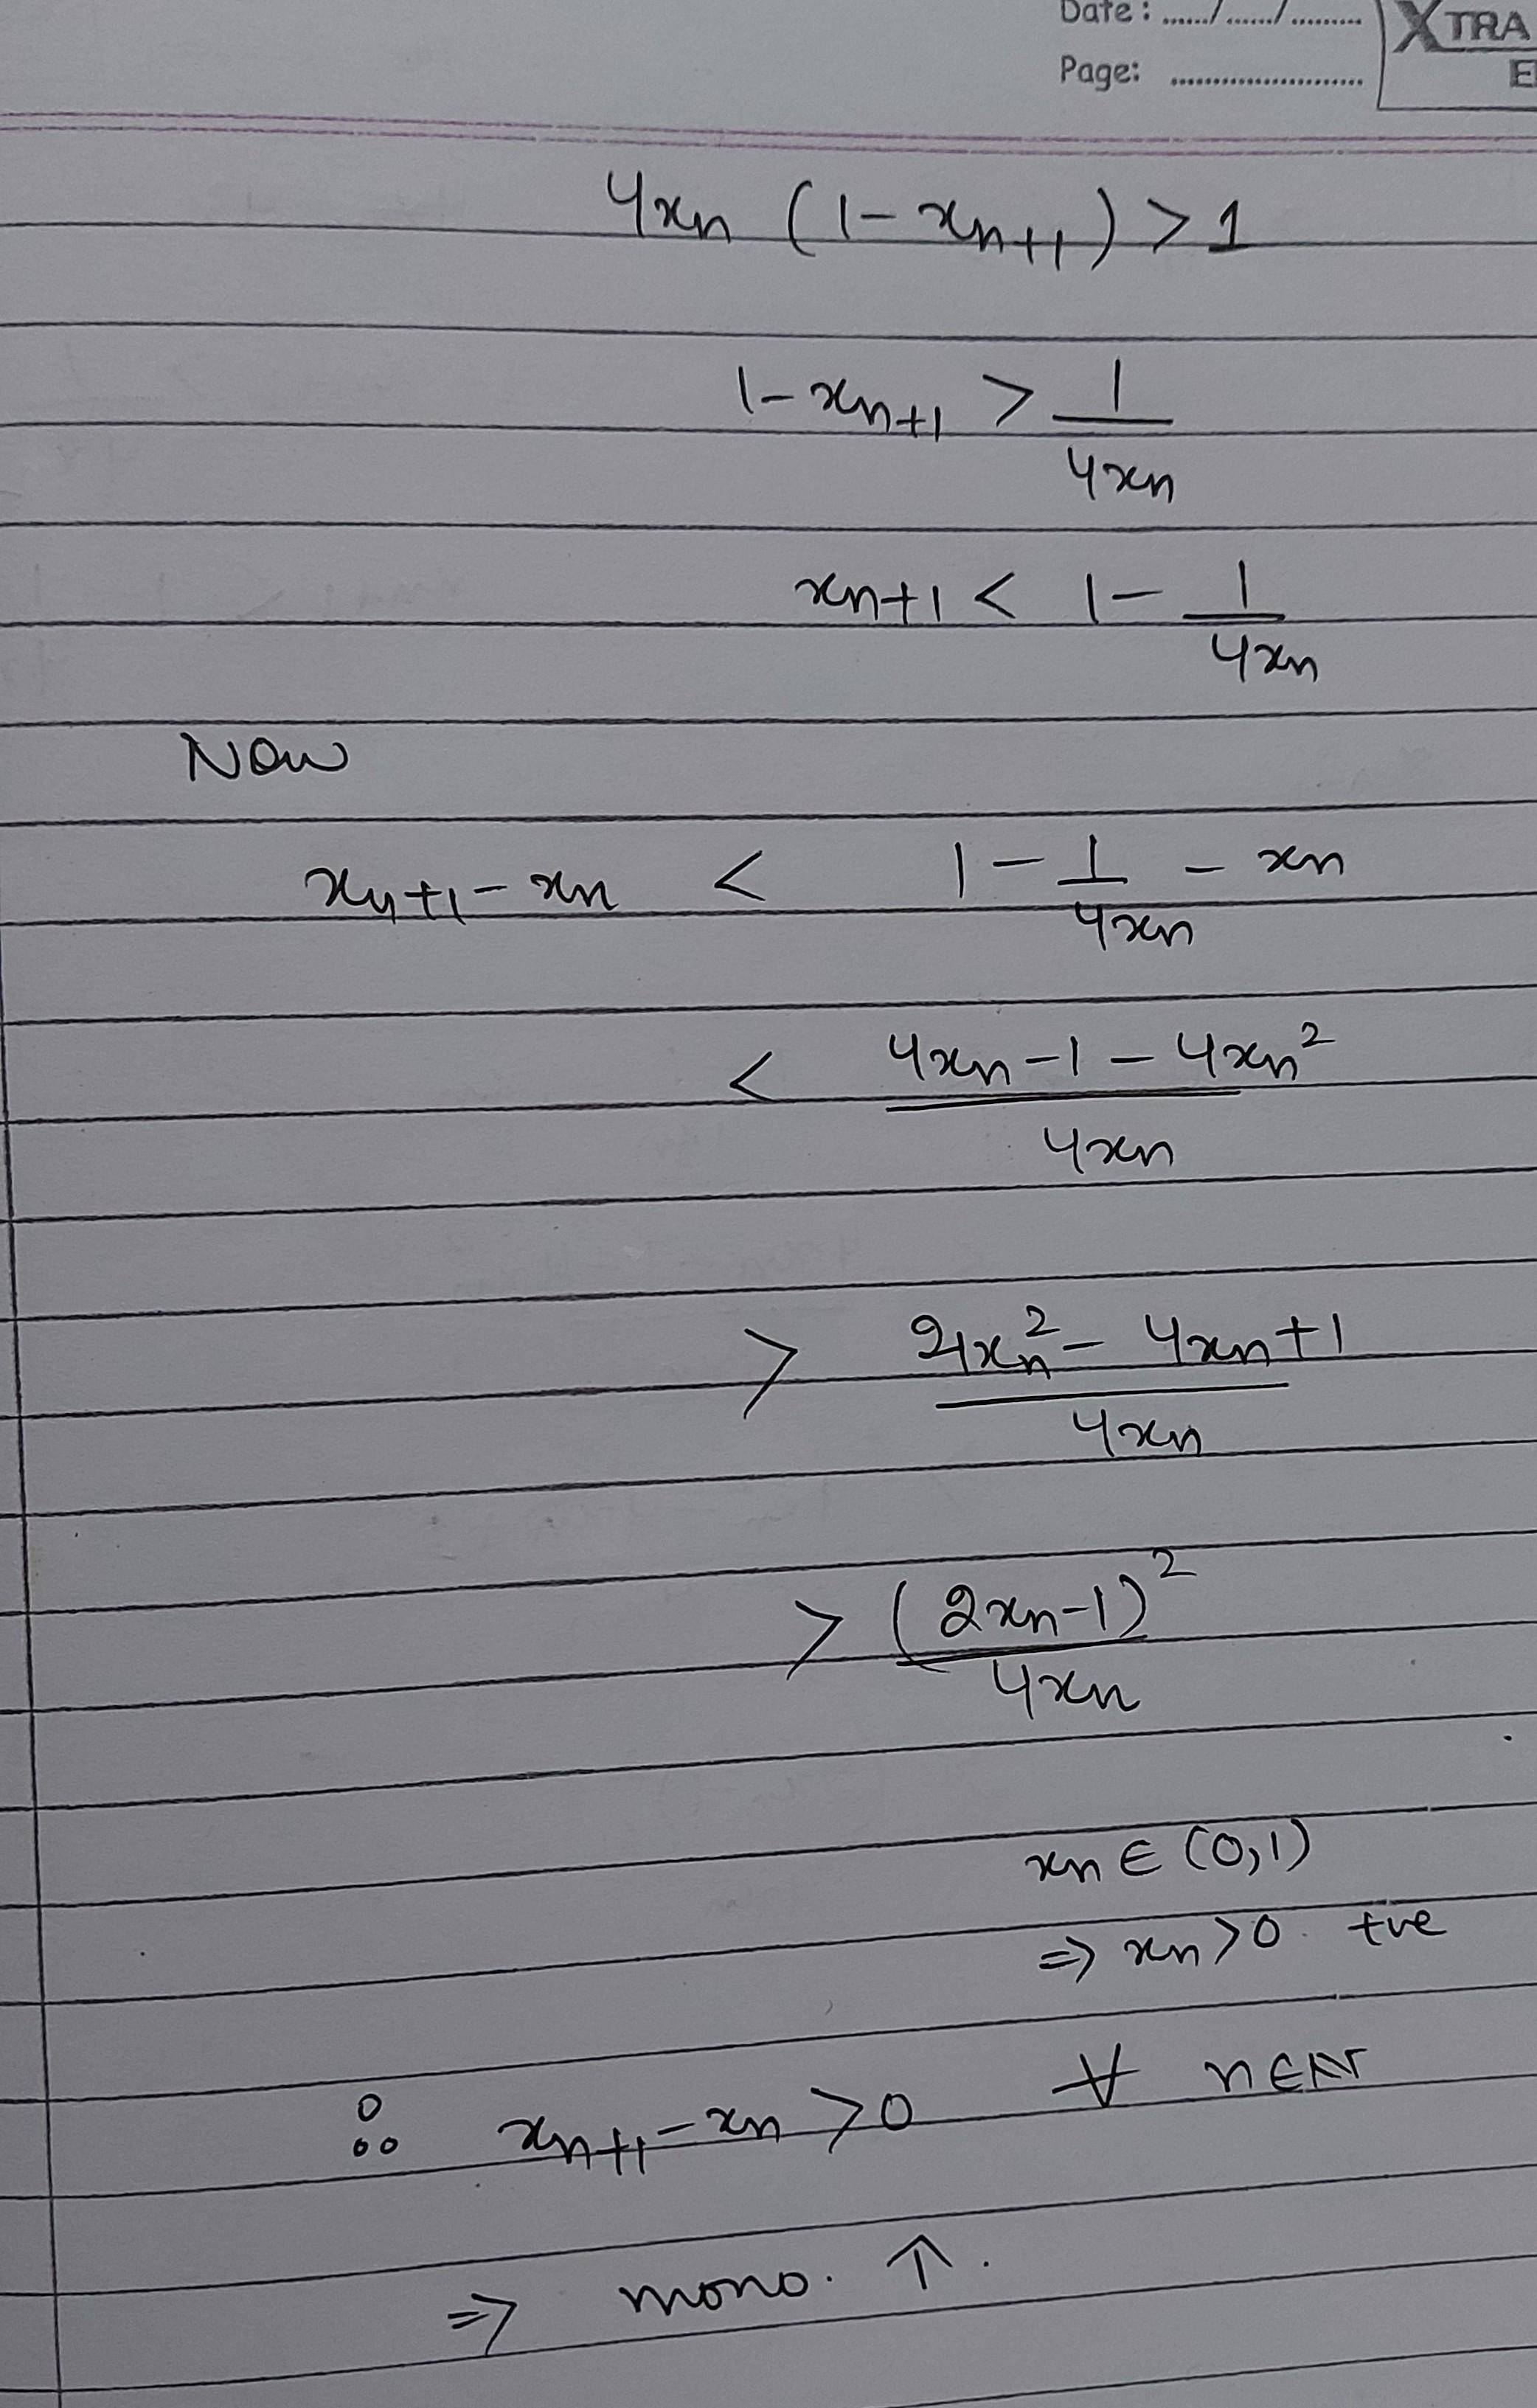 Date: ....../....../.........
Page: ........................
XTRA
E
4xn (1 - xn+1) > 1
1 - xn+1 > 1/4xn
xn+1 < 1 - 1/4xn
Now
xn+1 - xn < 1 - 1/4xn - xn
< (4xn - 1 - 4xn²)/4xn
> (4xn² - 4xn + 1)/4xn
> (2xn-1)²/4xn
xn ∈ (0,1)
⇒ xn > 0. +ve
∴ xn+1 - xn > 0 ∀ n ∈ N
⇒ mono. ↑.